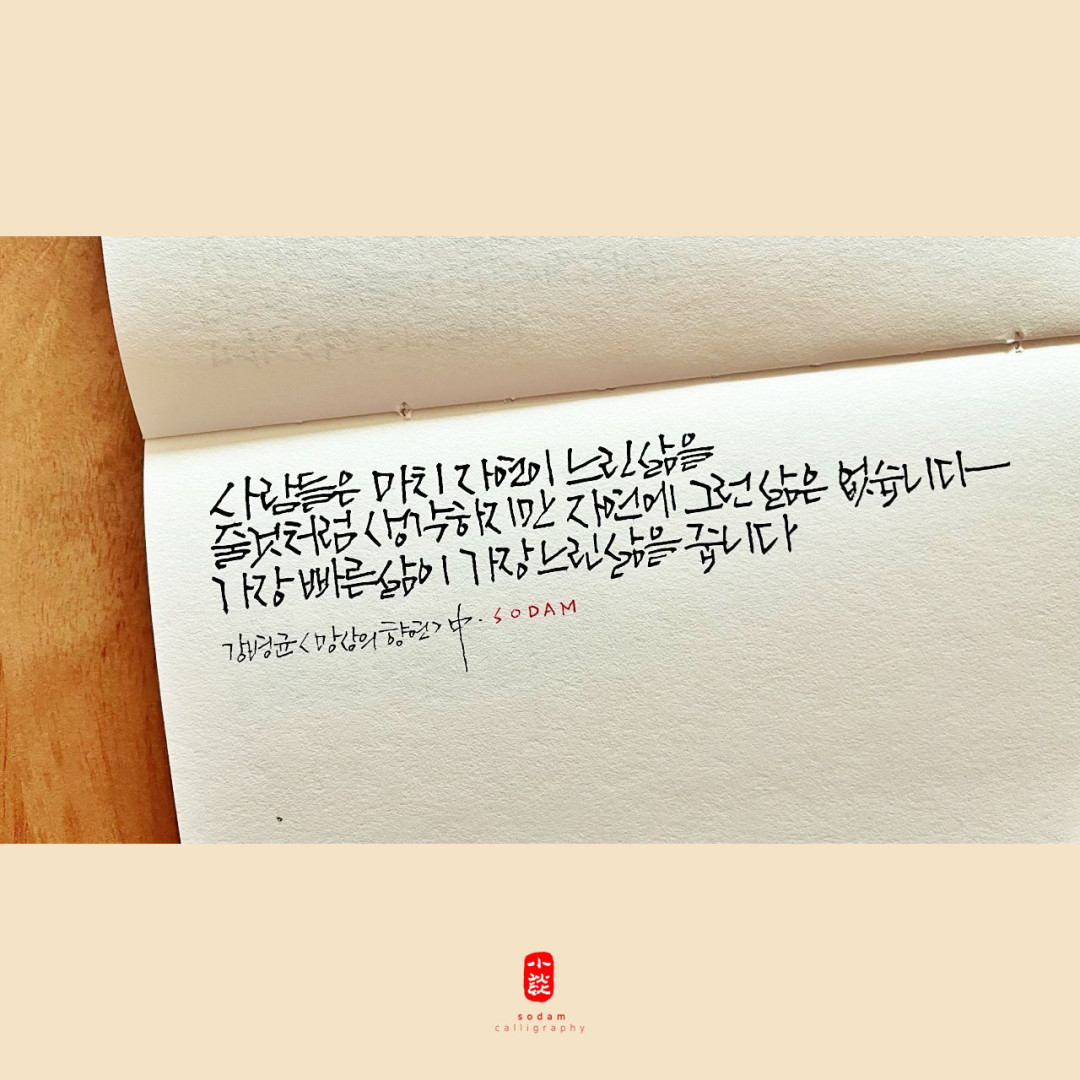 사람들은 마치 자연이 느린 삶을
줄것처럼 생각하지만 자연에 그런 삶은 없습니다
가장 빠른 삶이 가장 느린 삶을 줍니다
강병균 <망상의 향연> 中. SODAM
小談
sodam
calligraphy